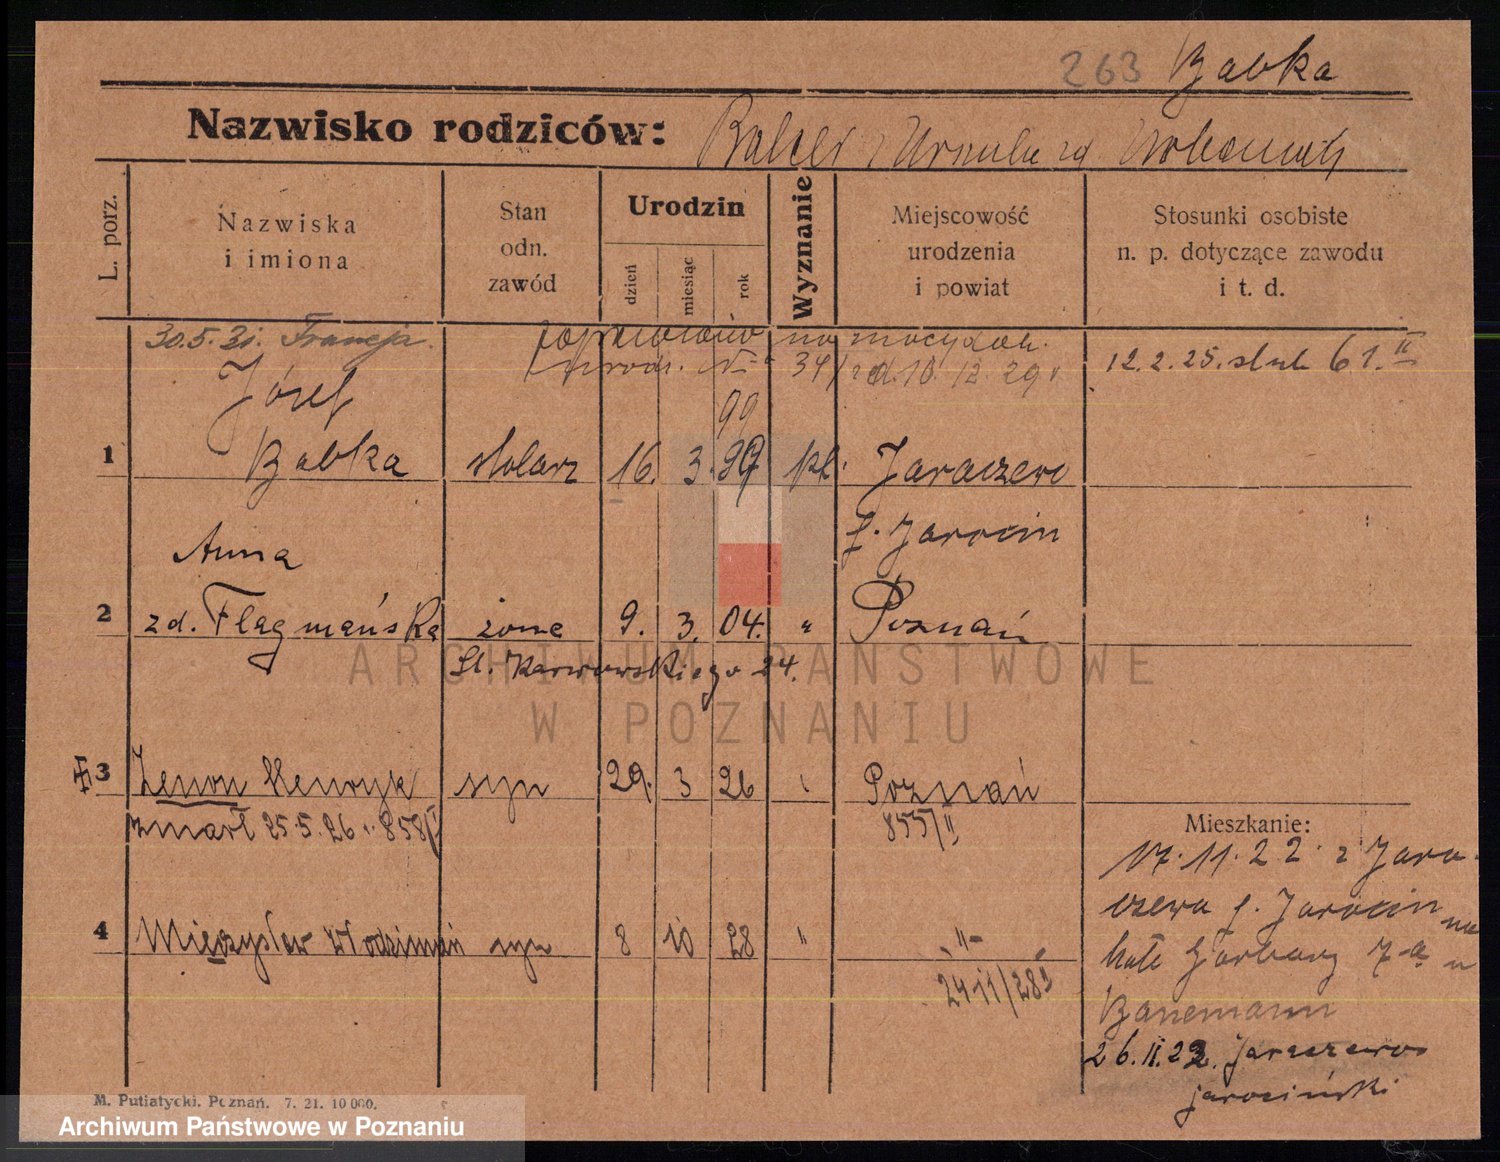 263 Babka
Nazwisko rodziców:
L. porz.
Nazwiska
i imiona
Stan
odn.
zawód
Urodzin
dzień
miesiąc
rok
Wyznanie
Miejscowość
urodzenia
i powiat
Stosunki osobiste
n. p. dotyczące zawodu
i t. d.
30.5.31. Francja.
na mocy dok.
urodz. 34/ z d. 10. 12. 29 r
12. 2. 25. ślub 61. II
Józef
99
1 Babka stolarz 16. 3. 99 kt. Jaraczewo
p. Jarocin
Anna
2 zd. Flagmańska żona 9. 3. 04. " Poznań
Ul. Karwowskiego 24.
3 Zenon Henryk syn 29. 3 26 Poznań
zmarł 25.5.26 858/II
855/II
Mieszkanie:
17. 11. 22. z Jara-
czewa p. Jarocin na
4 Mieczysław syn 8 10 28 " -"-
Garbary 7a u
2411/28
Banemann
26. II. 23. Jaraczewo
jarociński
M. Putiatycki. Poznań. 7. 21. 10 000.
ARCHIWUM PAŃSTWOWE
W POZNANIU
Archiwum Państwowe w Poznaniu